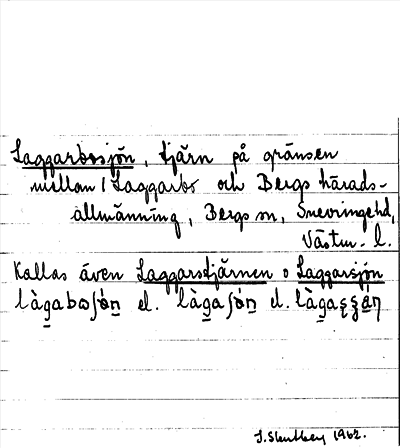 Laggarbosjön, tjärn på gränsen
mellan 1 Laggarbo och Bergs härads-
allmänning, Bergs sn, Snevringe hd,
Västm. l.
Kallas även Laggarstjärnen o Laggarsjön
làgaboʃön el. làgaʃön el.
1962.